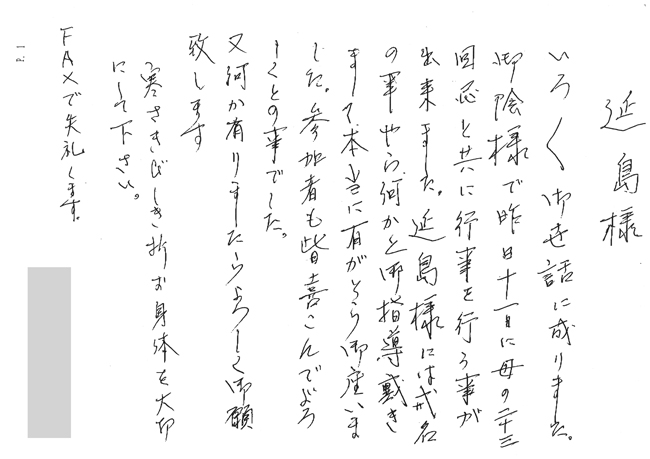 近島様
いろ〱御世話に成りました。
御陰様で昨日十一日に母の二十三
回忌と共に行事を行う事が
出来ました。近島様には戒名
の事やら何かと御指導戴き
まして本当に有がとう御座いま
した。参加者も皆喜こんでおろ
しくとの事でした。
又何か有りましたらよろしく御願
致します
寒さきびしき折お身体を大切
にして下さい。
FAXで失礼します。
P.1